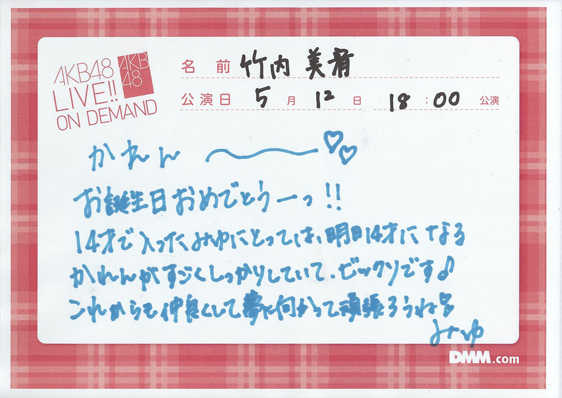 AKB48
LIVE!!
ON DEMAND
AKB
48
名前 竹内美宥
公演日 5月12日 18:00公演
かれん 〜♡♡
お誕生日おめでとうーっ!!
14才で入ったみゆにとっては、明日14才になる
かれんがすごくしっかりしていて、ビックリです♪
これからも仲良くして夢に向かって頑張ろうね
みゆ
DMM.com